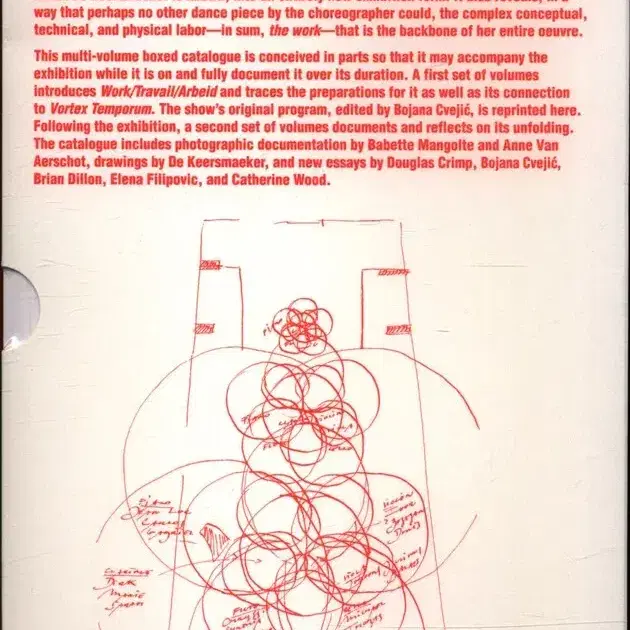 way that perhaps no other dance piece by the choreographer could, the complex conceptual,
technical, and physical labor—in sum, the work—that is the backbone of her entire oeuvre.
This multi-volume boxed catalogue is conceived in parts so that it may accompany the
exhibition while it is on and fully document it over its duration. A first set of volumes
introduces Work/Travail/Arbeid and traces the preparations for it as well as its connection
to Vortex Temporum. The show's original program, edited by Bojana Cvejić, is reprinted here.
Following the exhibition, a second set of volumes documents and reflects on its unfolding.
The catalogue includes photographic documentation by Babette Mangolte and Anne Van
Aerschot, drawings by De Keersmaeker, and new essays by Douglas Crimp, Bojana Cvejić,
Brian Dillon, Elena Filipovic, and Catherine Wood.